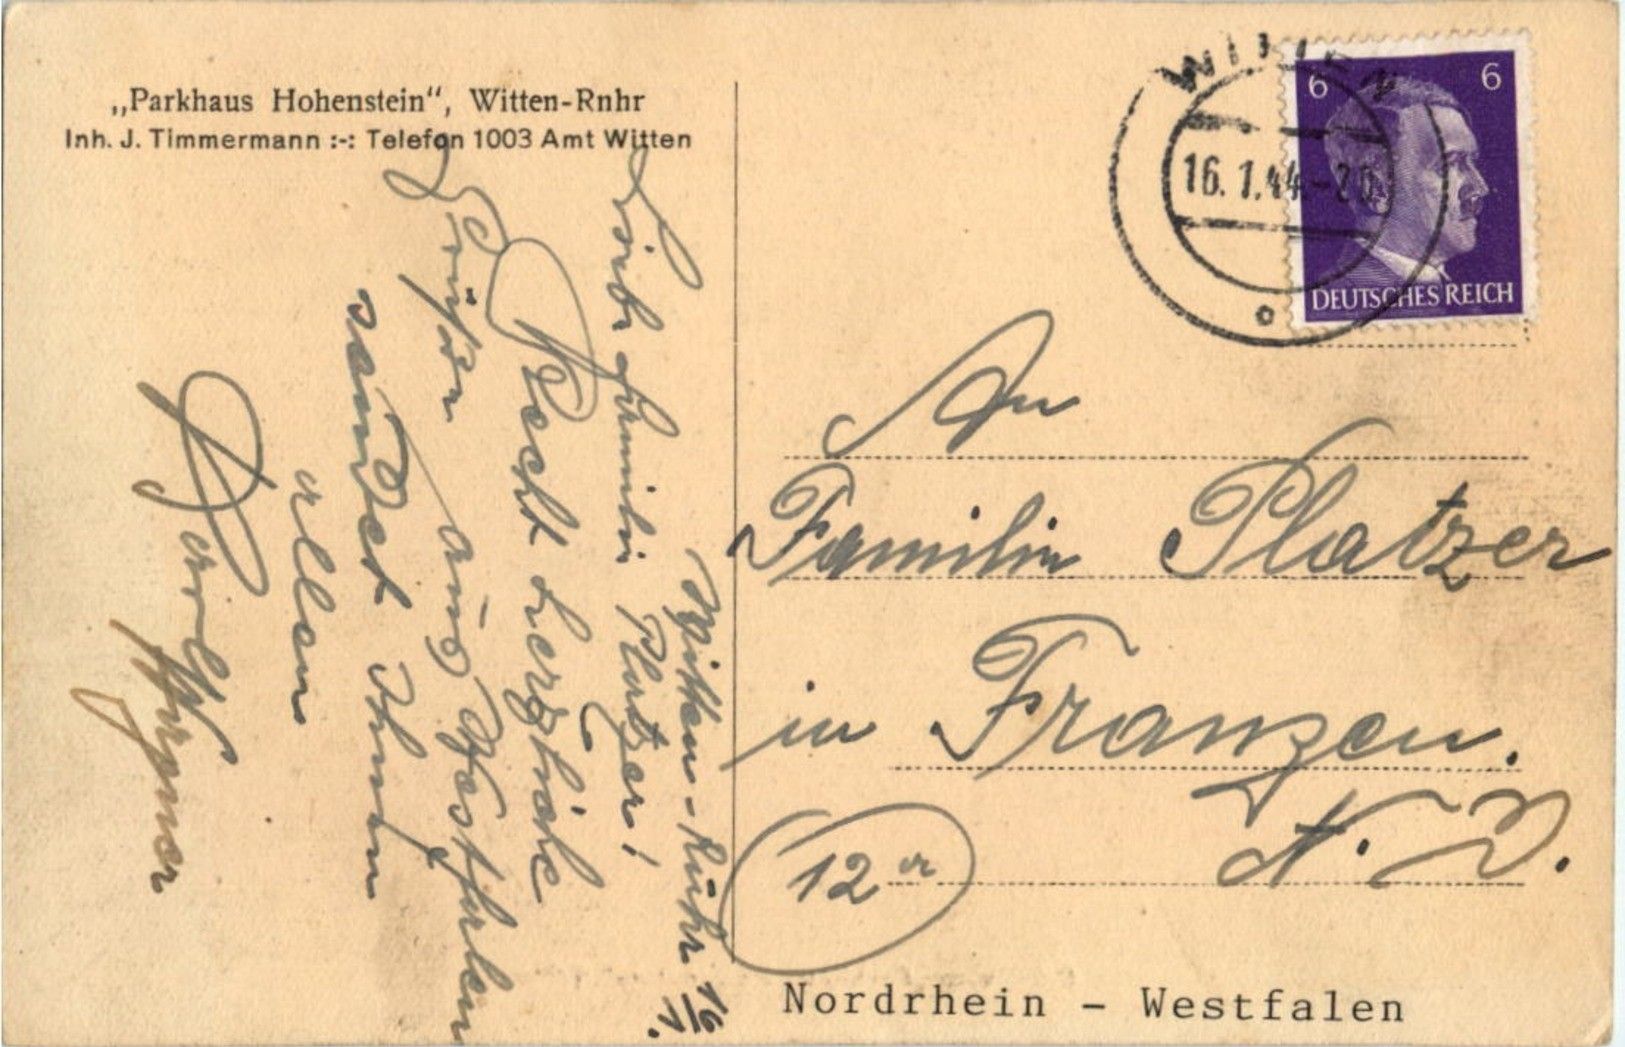 „Parkhaus Hohenstein“, Witten-Rnhr
Inh. J. Timmermann :-: Telefon 1003 Amt Witten
Witten-Ruhr 16/1.
Liebe Familie Platzer!
Recht herzliche
Grüße aus Westfalen
sendet Ihnen
allen
WITTEN
16.1.44.-20
6 6
DEUTSCHES REICH
An
Familie Platzer
in Franzen.
N. D.
12a
Nordrhein - Westfalen